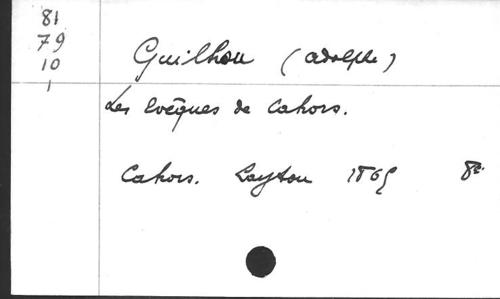 81
79
10
1
Guilhou (adolphe)
Les Evêques de Cahors.
Cahors. Layton 1865 8º